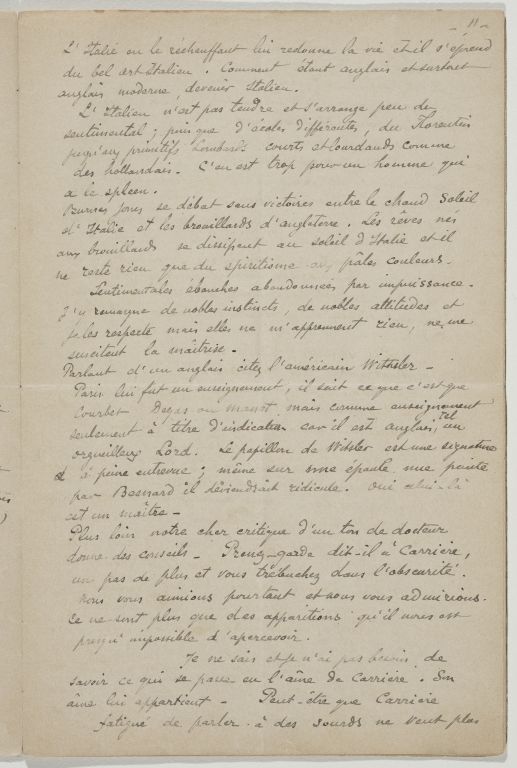 11
L'Italie ou le réchauffant lui redonne la vie et il s'éprend
du bel art Italien. Comment étant anglais et surtout
anglais moderne, devenir Italien.
L'Italien n'est pas tendre et s'arrange peu de
sentimental ; puis que d'écoles différentes, du Florentin
jusqu'aux primitifs Lombards courts et lourdauds comme
des hollandais. C'en est trop pour un homme qui
a le spleen.
Burnes Jones se débat sans victoires entre le chaud soleil
d'Italie et les brouillards d'angleterre. Les rêves nés
aux brouillards se dissipent au soleil d'Italie et il
ne reste rien que du spiritisme aux pâles couleurs.
Sentimentales ébauches abandonnées par impuissance.
J'y remarque de nobles instincts, de nobles attitudes et
je les respecte mais elles ne m'apprennent rien, ne me
suscitent la maîtrise.
Parlant d'un anglais citez l'américain Withsler -
Paris lui fut un enseignement, il sait ce que c'est que
Courbet Degas ou Manet, mais comme enseignement
seulement à titre d'indication car il est anglais, tel un
orgueilleux Lord. Le papillon de Wihsler est une signature
à peine entrevue ; même sur une épaule nue peinte
par Besnard il deviendrait ridicule. Oui celui-là
est un maître -
Plus loin notre cher critique d'un ton de docteur
donne des conseils - Prenez-garde dit-il à Carrière,
un pas de plus et vous trébuchez dans l'obscurité.
Nous vous aimions pourtant et nous vous admirions.
Ce ne sont plus que des apparitions qu'il nous est
presqu'impossible d'apercevoir.
Je ne sais et je n'ai pas besoin de
savoir ce qui se passe en l'âme de Carrière. Son
âme lui appartient - Peut-être que Carrière
fatigué de parler à des sourds ne veut plus